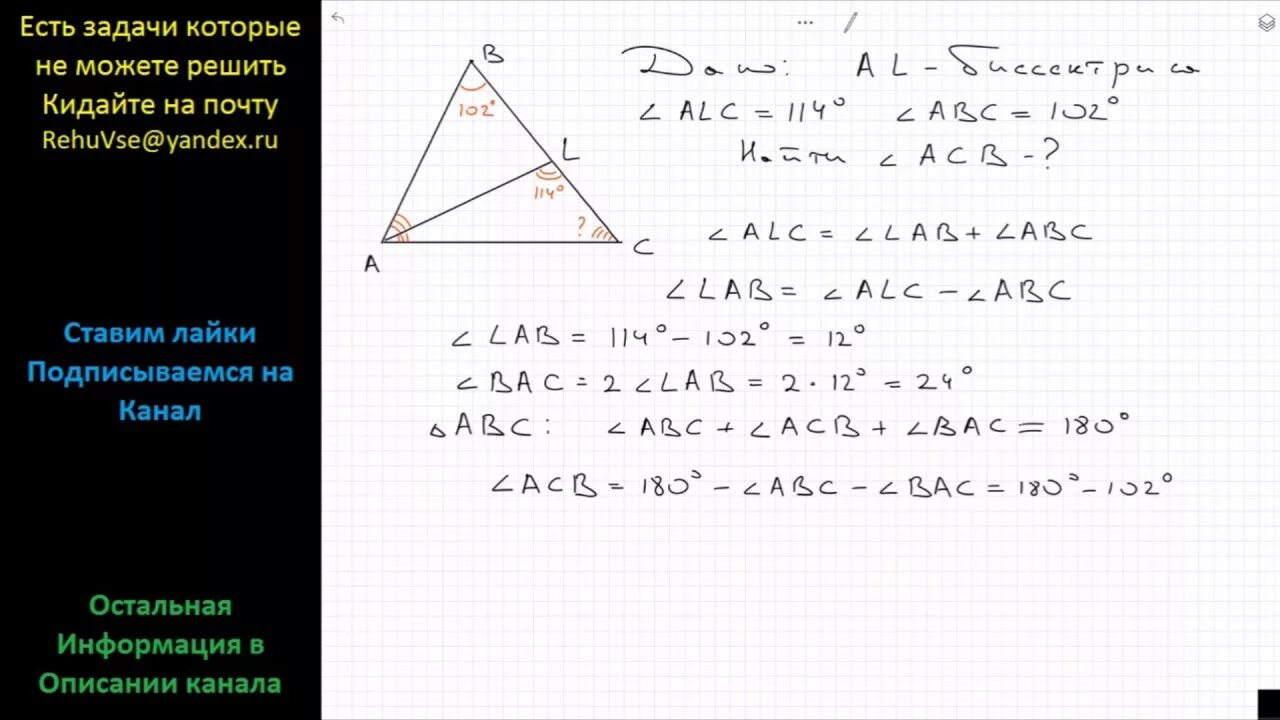 Есть задачи которые
не можете решить
Кидайте на почту
RehuVse@yandex.ru
Ставим лайки
Подписываемся на
Канал
Остальная
Информация в
Описании канала
B
102°
L
114°
?
A
C
Дано: AL - биссектриса
∠ ALC = 114° ∠ ABC = 102°
Найти ∠ ACB - ?
∠ ALC = ∠ LAB + ∠ ABC
∠ LAB = ∠ ALC - ∠ ABC
∠ LAB = 114° - 102° = 12°
∠ BAC = 2 ∠ LAB = 2 · 12° = 24°
△ ABC: ∠ ABC + ∠ ACB + ∠ BAC = 180°
∠ ACB = 180° - ∠ ABC - ∠ BAC = 180° - 102°